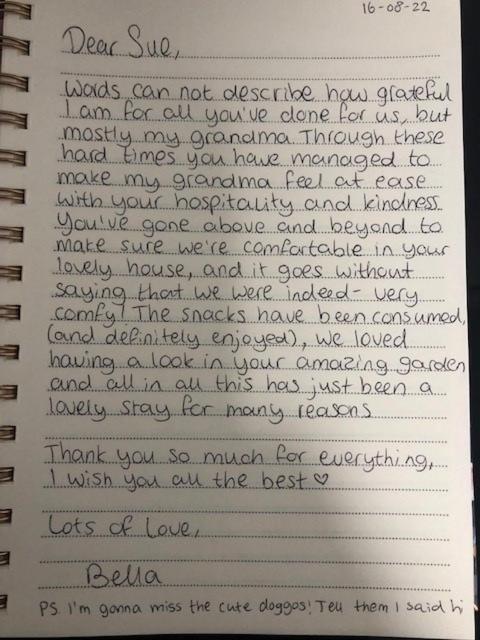 16-08-22
Dear Sue,
Words can not describe how grateful
I am for all you've done for us, but
mostly my grandma. Through these
hard times you have managed to
make my grandma feel at ease
with your hospitality and kindness.
You've gone above and beyond to
make sure we're comfortable in your
lovely house, and it goes without
saying that we were indeed - very
comfy! The snacks have been consumed,
(and definitely enjoyed), we loved
having a look in your amazing garden
and all in all this has just been a
lovely stay for many reasons
Thank you so much for everything,
I wish you all the best ♡
Lots of love,
Bella
PS. I'm gonna miss the cute doggos! Tell them I said hi